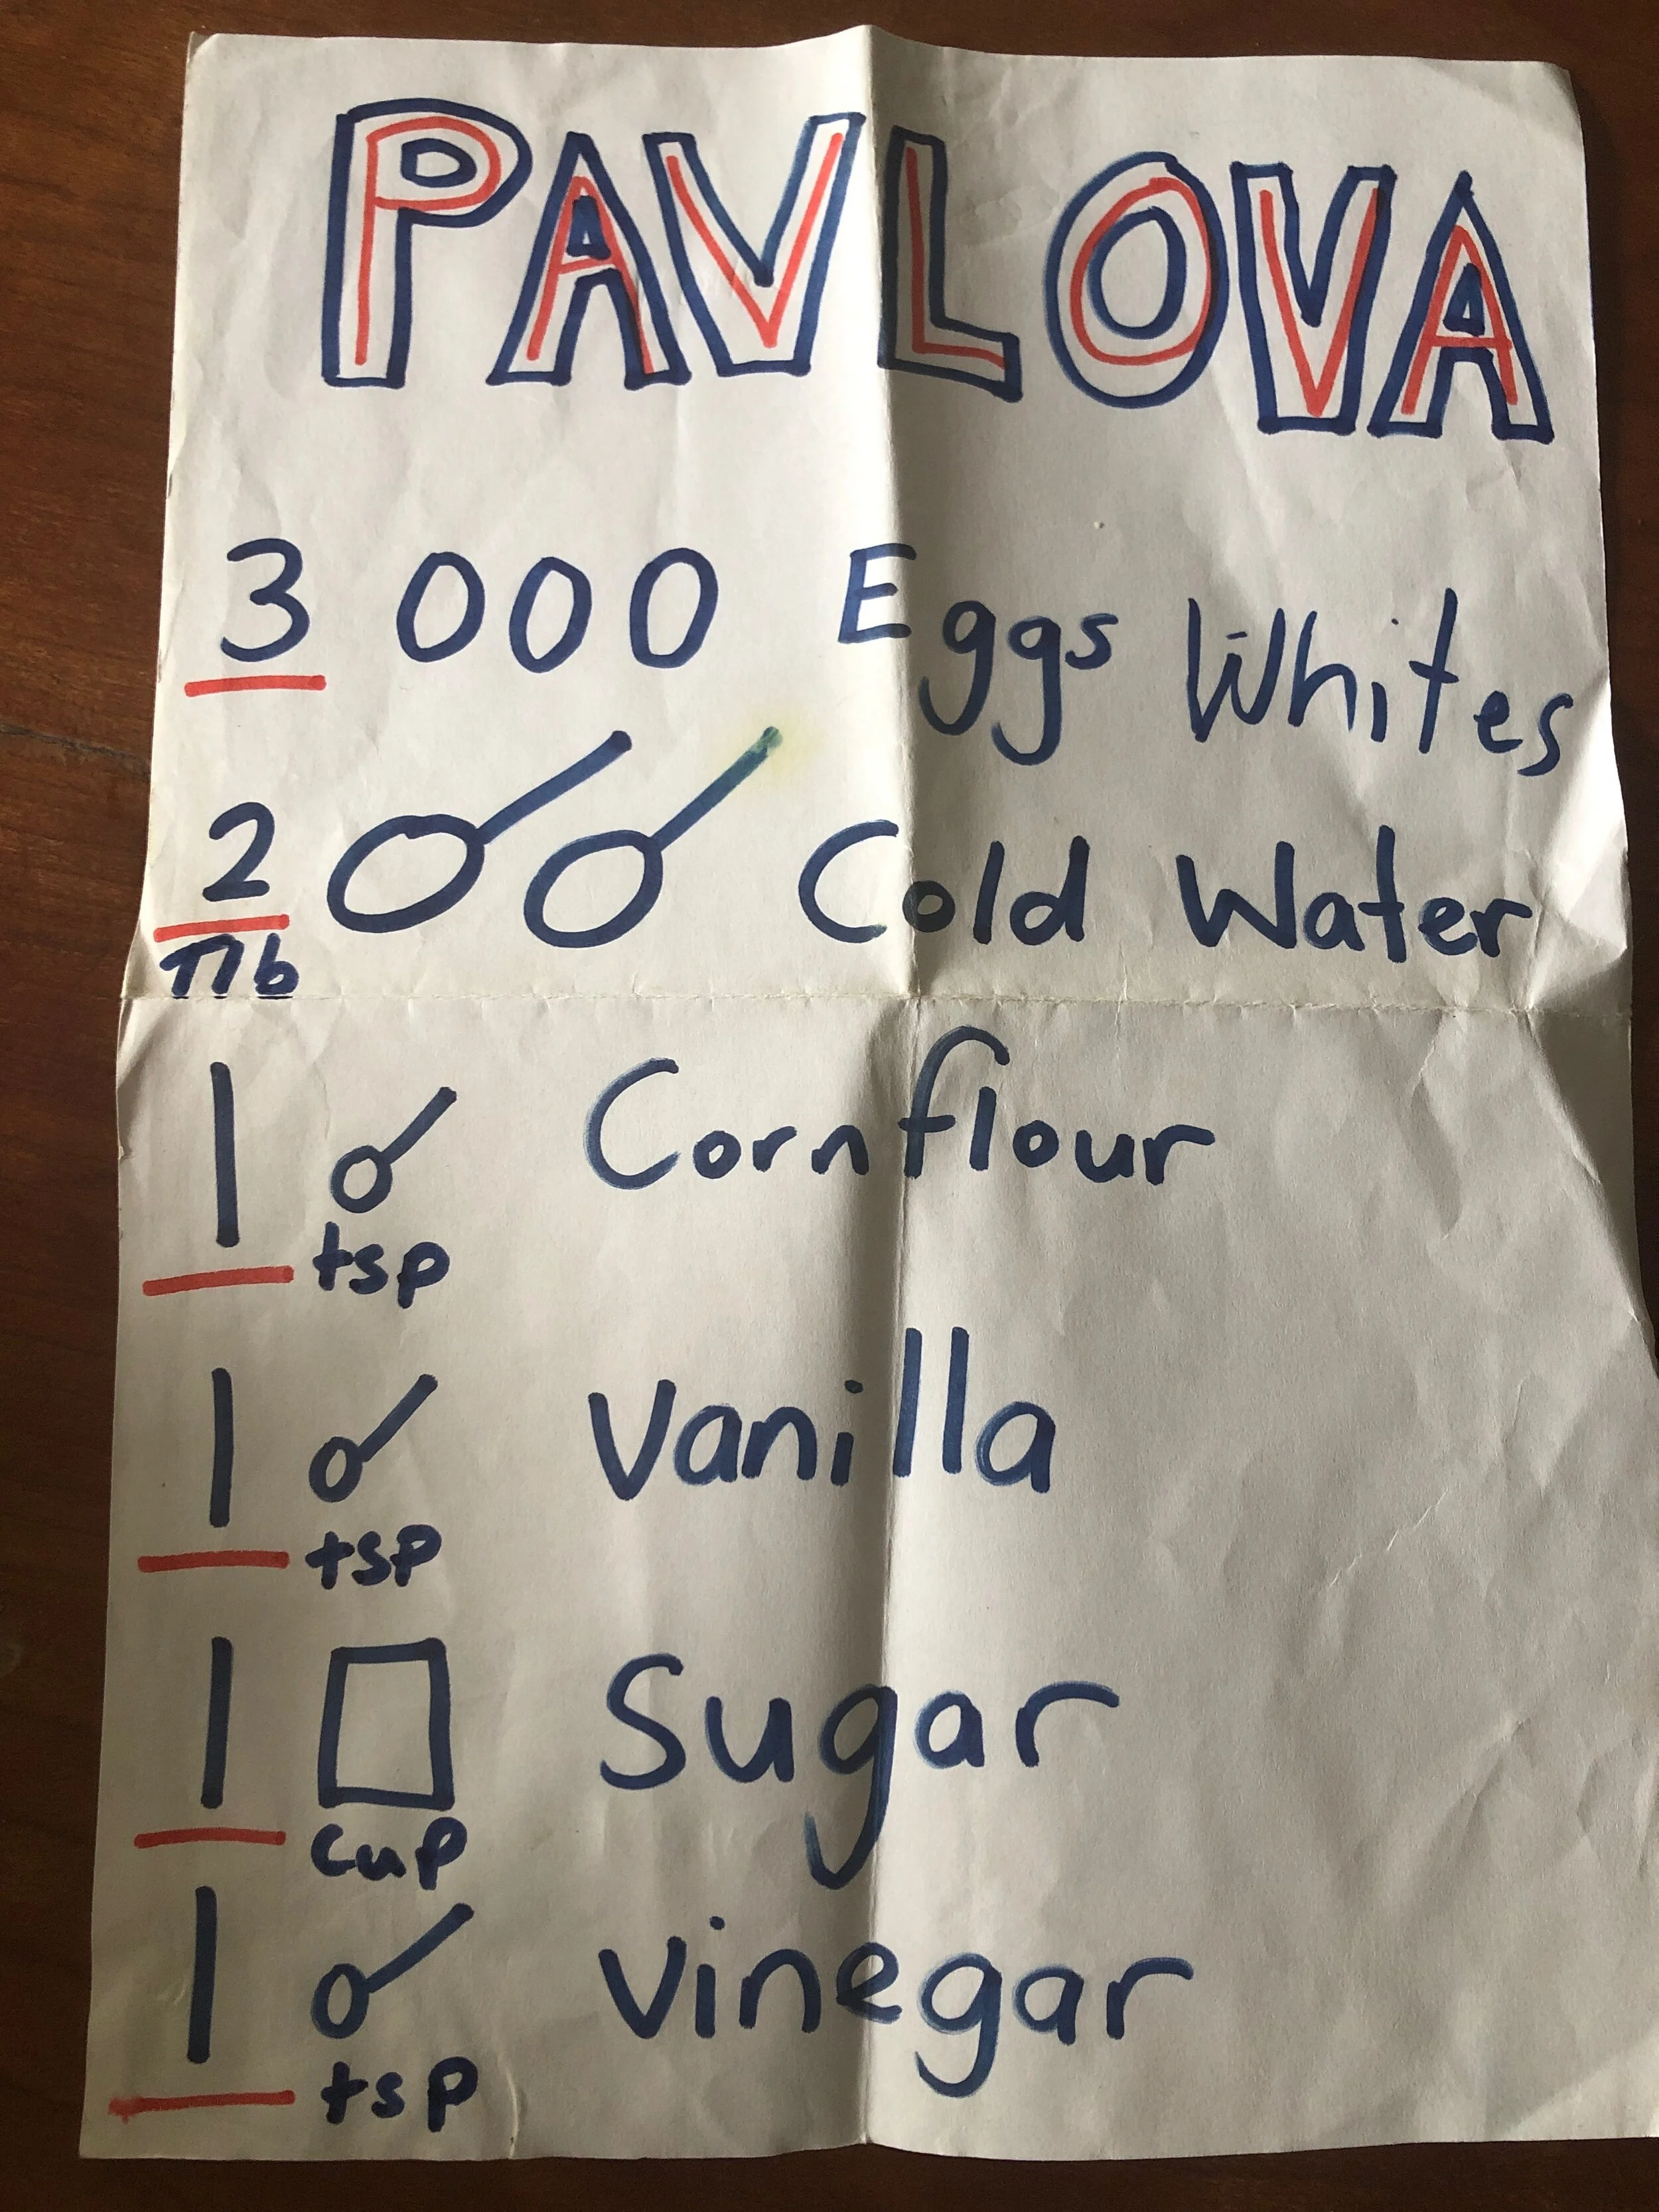 PAVLOVA
3 000 Eggs Whites
2 Cold Water
Tlb
1 Cornflour
tsp
1 Vanilla
tsp
1 Sugar
cup
1 vinegar
tsp